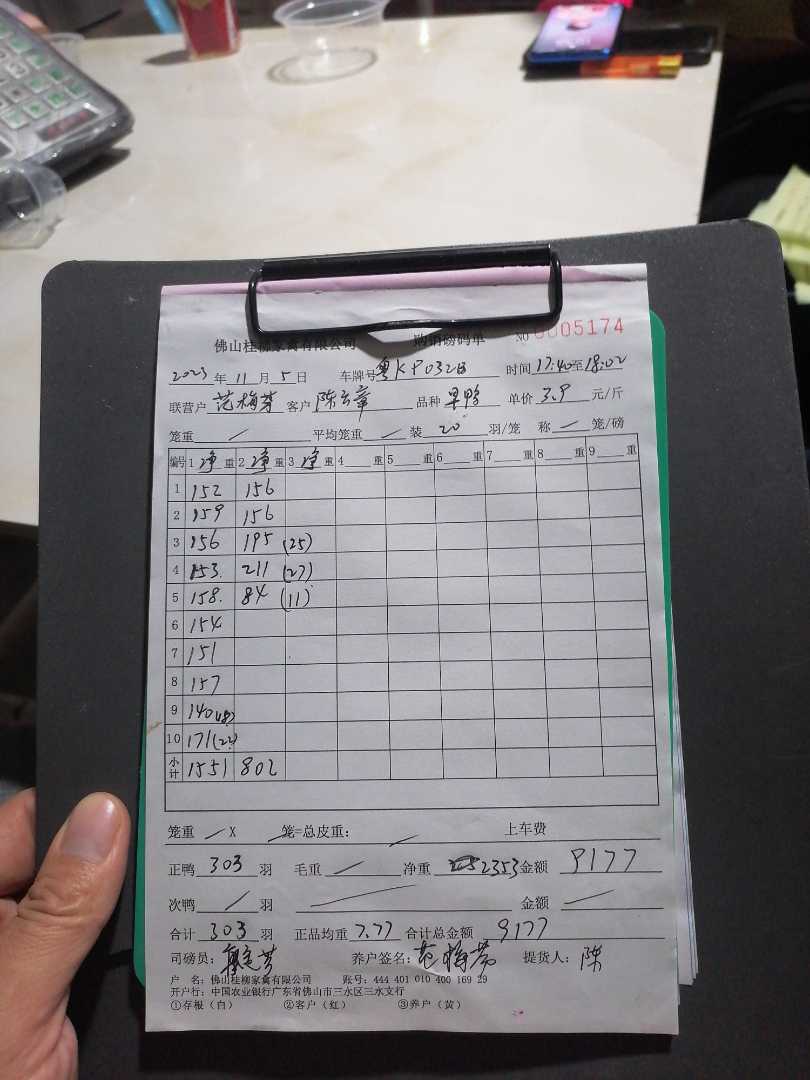 佛山桂柳家禽有限公司 购销磅码单 NO 0005174
2023 年 11 月 5 日 车牌号 粤KP032日 时间 17:40至18:02
联营户 范梅芬 客户 陈云章 品种 单价 3.9 元/斤
笼重 / 平均笼重 / 装 20 羽/笼 称 / 笼/磅
编号 1 净 重 2 净 重 3 净 重 4 重 5 重 6 重 7 重 8 重 9 重
1 152 156
2 159 156
3 156 195 (25)
4 153. 211 (27)
5 158. 84 (11)
6 154
7 151
8 157
9 140(18)
10 171(22)
小计 1551 802
笼重 / X / 笼=总皮重: / 上车费
正鸭 303 羽 毛重 / 净重 2353 金额 9177
次鸭 / 羽 / 金额 /
合计 303 羽 正品均重 7.77 合计总金额 9177
司磅员: 养户签名: 范梅芬 提货人: 陈
户 名: 佛山桂柳家禽有限公司 账号: 444 401 010 400 169 29
开户行: 中国农业银行广东省佛山市三水区三水支行
①存根(白) ②客户(红) ③养户(黄)